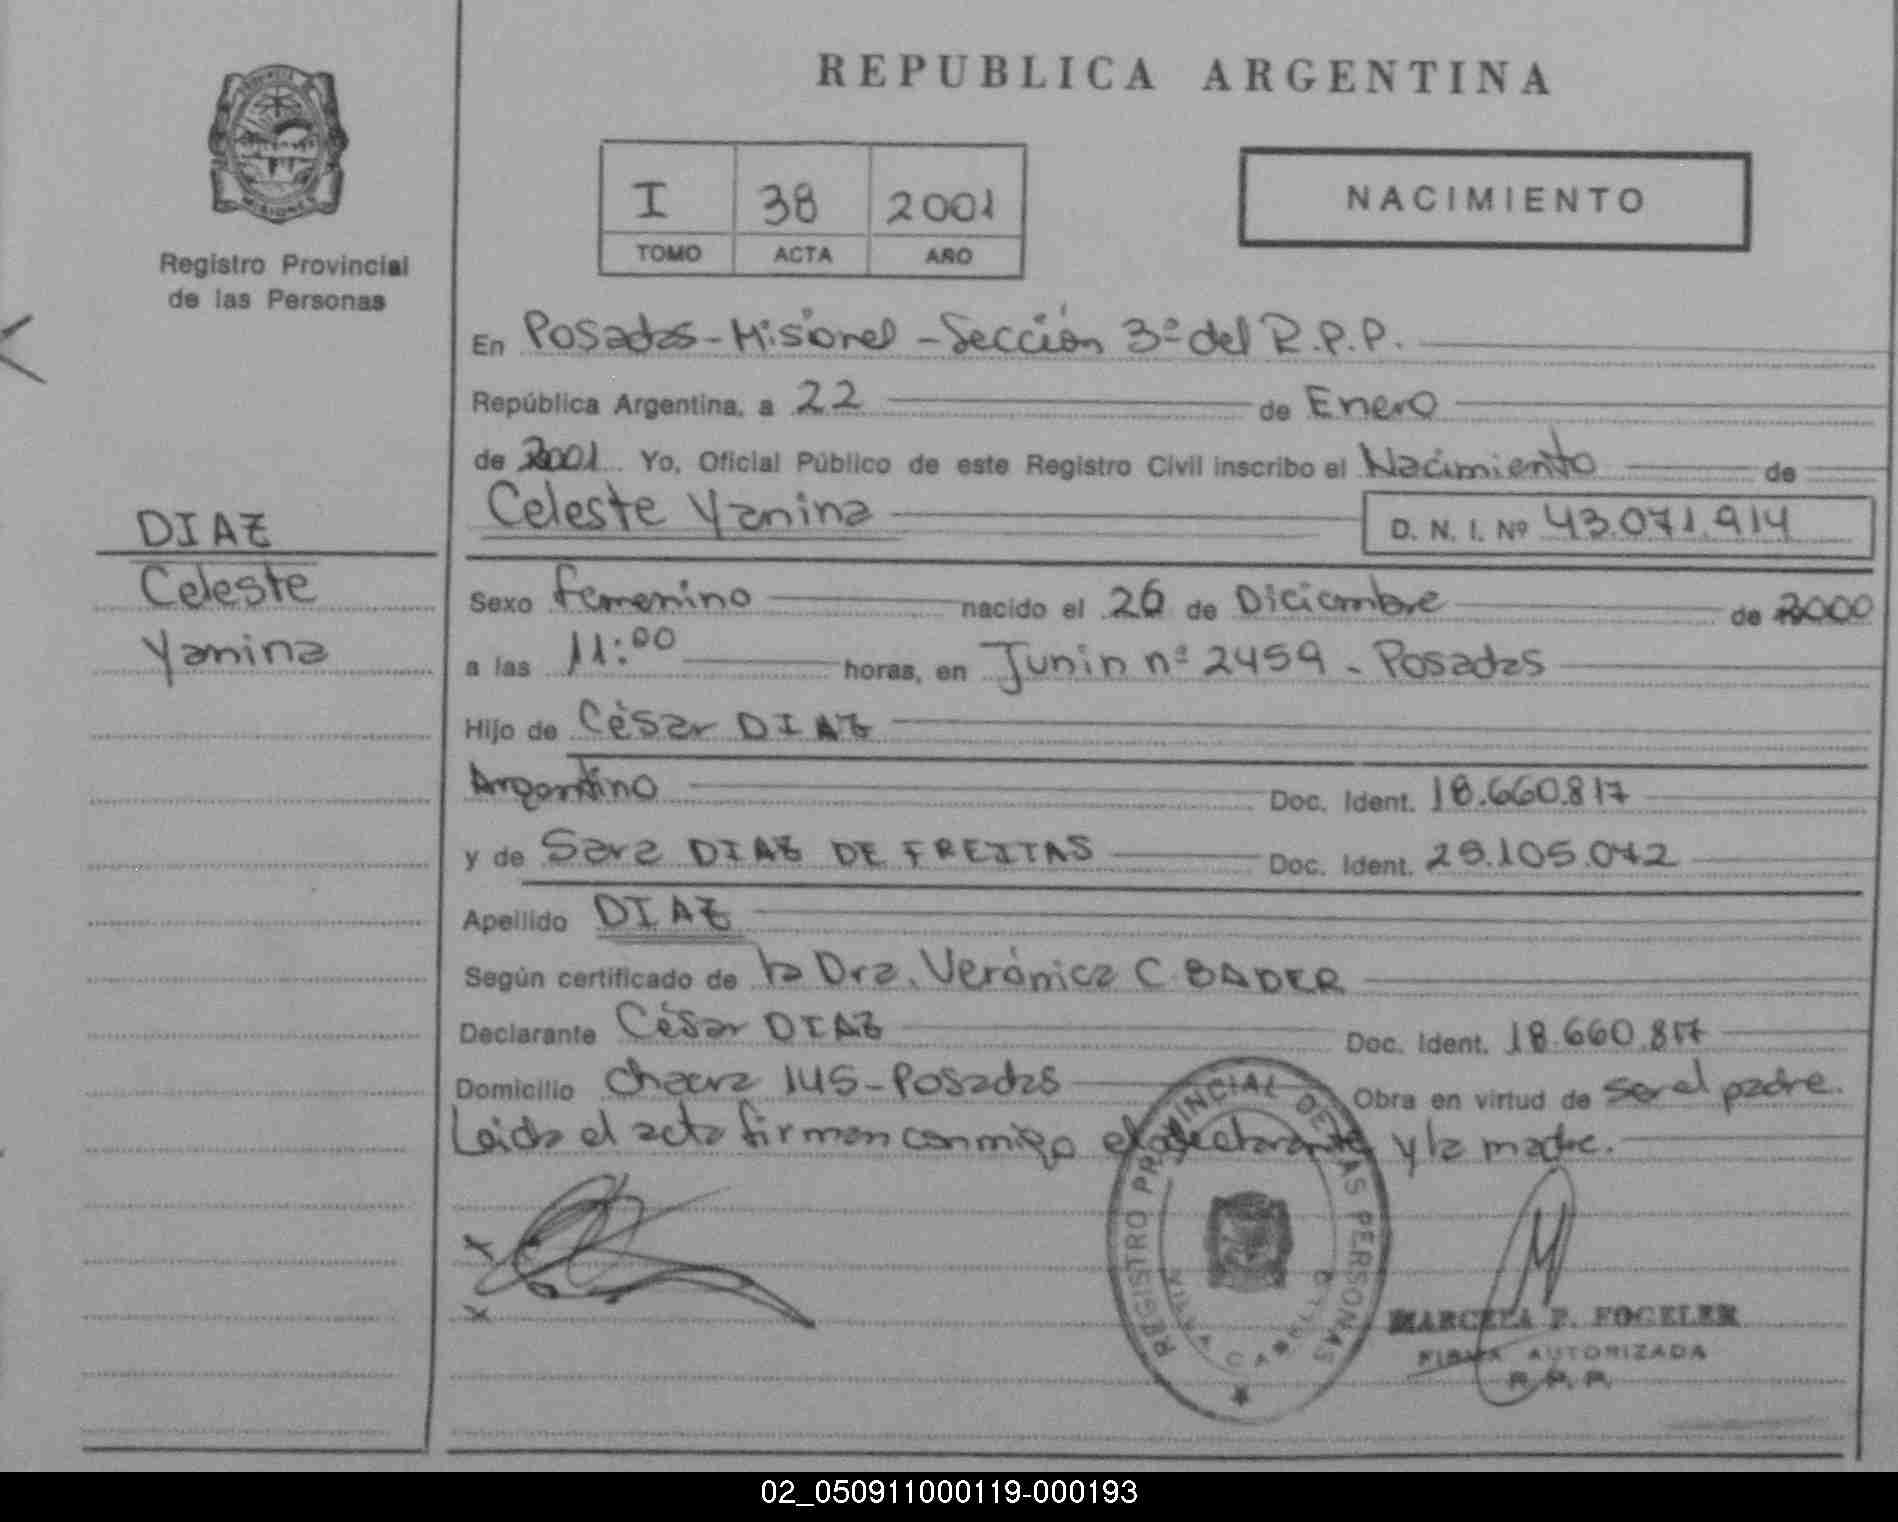 REPUBLICA ARGENTINA
PROVINCIA
MISIONES
Registro Provincial
de las Personas
I 38 2001
TOMO ACTA AÑO
NACIMIENTO
En Posadas-Misiones-Sección 3ª del R.P.P.
República Argentina, a 22 de Enero
de 2001 Yo, Oficial Público de este Registro Civil inscribo el Nacimiento de
Celeste Yanina D. N. I. Nº 43.071.914
DIAZ
Celeste
Yanina
Sexo femenino nacido el 26 de Diciembre de 2000
a las 11:00 horas, en Junin nº 2459 - Posadas
Hijo de César DIAZ
Argentino Doc. Ident. 18.660.817
y de Sara DIAZ DE FREITAS Doc. Ident. 25.105.042
Apellido DIAZ
Según certificado de la Dra. Verónica C BADER
Declarante César DIAZ Doc. Ident. 18.660.817
Domicilio chacra 145-Posadas Obra en virtud de ser el padre.
Leida el acta firman conmigo el declarante y la madre.
REGISTRO PROVINCIAL DE LAS PERSONAS
VILLA CABELLO
MARCELA P. FOGELER
FIRMA AUTORIZADA
R. P. P.
02_050911000119-000193